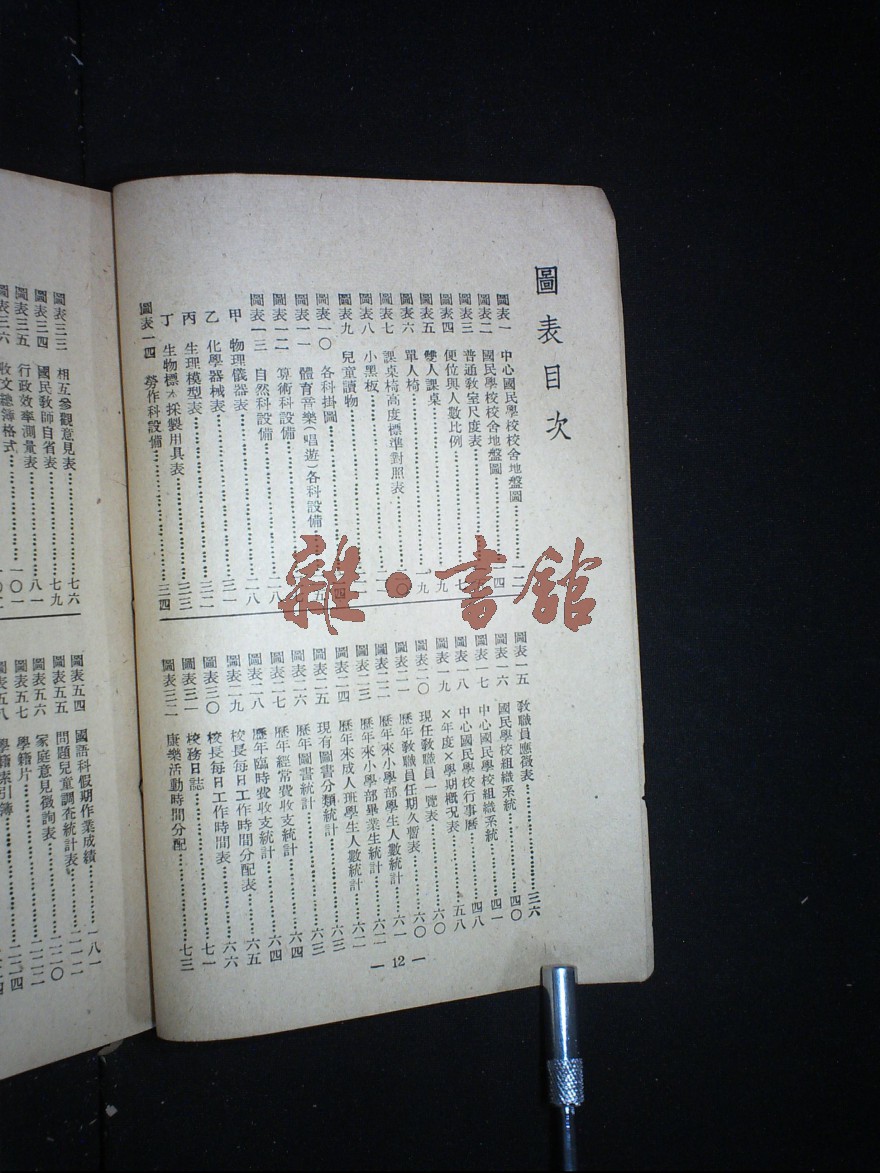 圖表目次
圖表一 中心國民學校校舍地盤圖 一二
圖表二 國民學校校舍地盤圖 一四
圖表三 普通教室尺度表
圖表四 便位與人數比例
圖表五 雙人課桌 一九
圖表六 單人椅 一九
圖表七 課桌椅高度標準對照表
圖表八 小黑板
圖表九 兒童讀物
圖表一〇 各科掛圖
圖表一一 體育音樂(唱遊)各科設備
圖表一二 算術科設備 二八
圖表一三 自然科設備 二八
甲 物理儀器表 三一
乙 化學器械表 三二
丙 生理模型表 三三
丁 生物標本採製用具表
圖表一四 勞作科設備 三四
圖表一五 教職員應徵表 三六
圖表一六 國民學校組織系統 四〇
圖表一七 中心國民學校組織系統 四一
圖表一八 中心國民學校行事曆 四八
圖表一九 ×年度×學期概況表 五八
圖表二〇 現任教職員一覽表 六〇
圖表二一 歷年教職員任期久暫表 六〇
圖表二二 歷年來小學部學生人數統計 六一
圖表二三 歷年來小學部畢業生統計
圖表二四 歷年來成人班學生人數統計
圖表二五 現有圖書分類統計 六三
圖表二六 歷年圖書統計 六三
圖表二七 歷年經常費收支統計 六四
圖表二八 歷年臨時費收支統計 六四
圖表二九 校長每日工作時間分配表 六五
圖表三〇 校長每日工作時間表 六六
圖表三一 校務日誌 七一
圖表三二 康樂活動時間分配 七三
— 12 —
圖表三三 相互參觀意見表 七六
圖表三四 國民教師自省表 七九
圖表三五 行政效率測量表 八一
圖表三六 收文總簿格式
圖表五四 國語科假期作業成績 一八一
圖表五五 問題兒童調查統計表
圖表五六 家庭意見徵詢表
圖表五七 學籍片
圖表五八 學籍索引簿
雜·書館